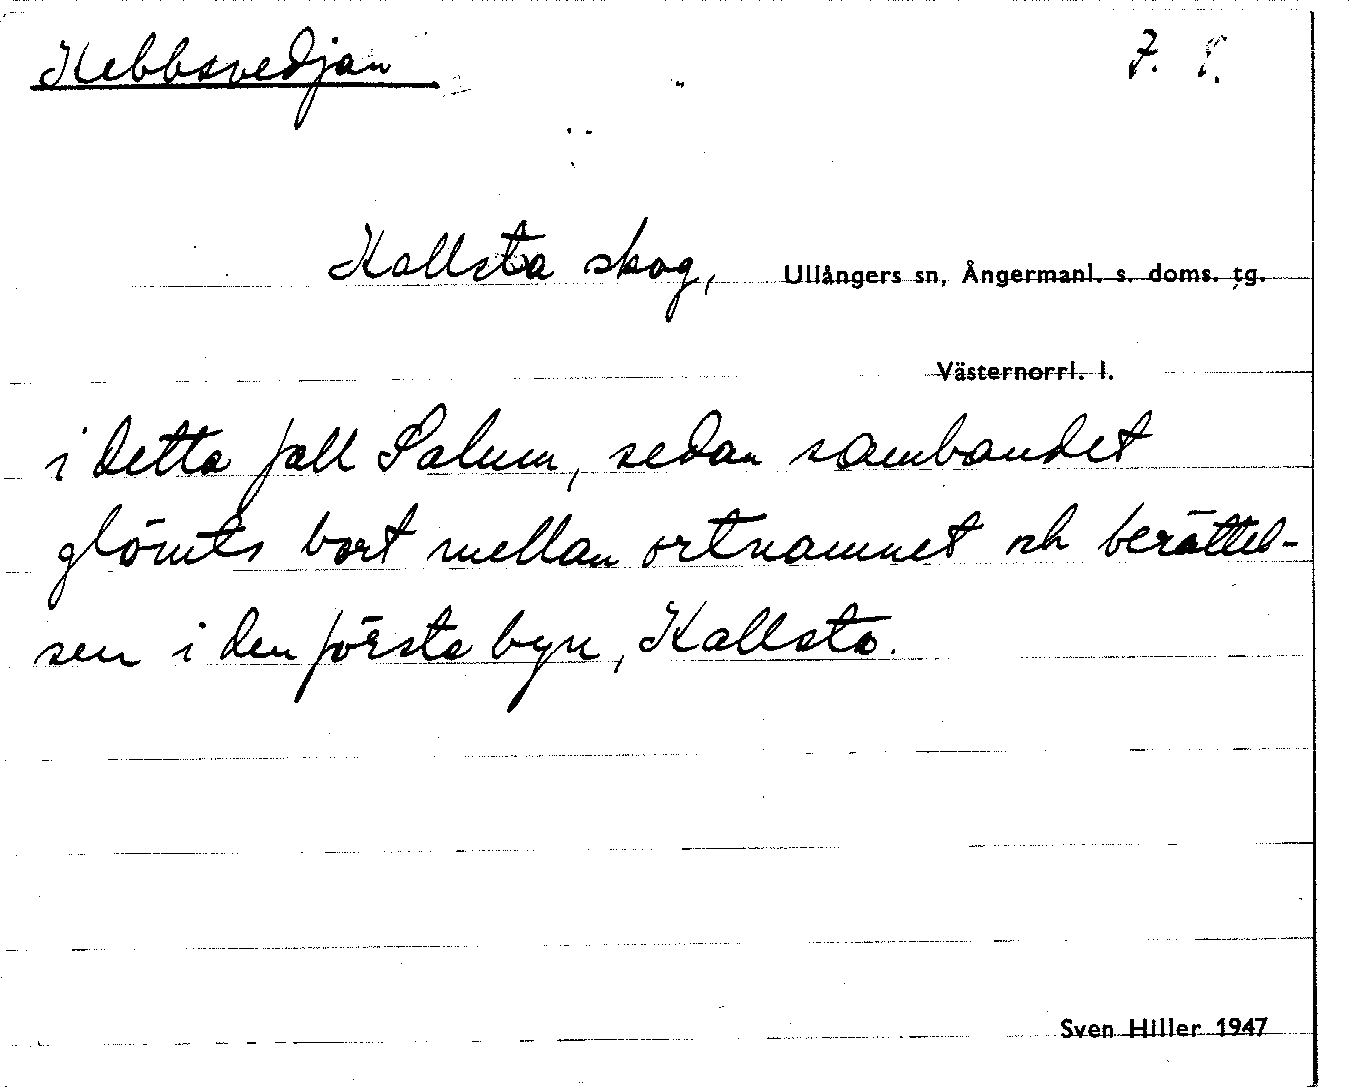 Kebbsvedjan 7. 8.
Kallsta skog, Ullångers sn, Ångermanl. s. doms. tg.
Västernorrl. l.
i detta fall Salum, sedan sambandet
glömts bort mellan ortnamnet och berättel-
sen i den första byn, Kallsta.
Sven Hiller 1947